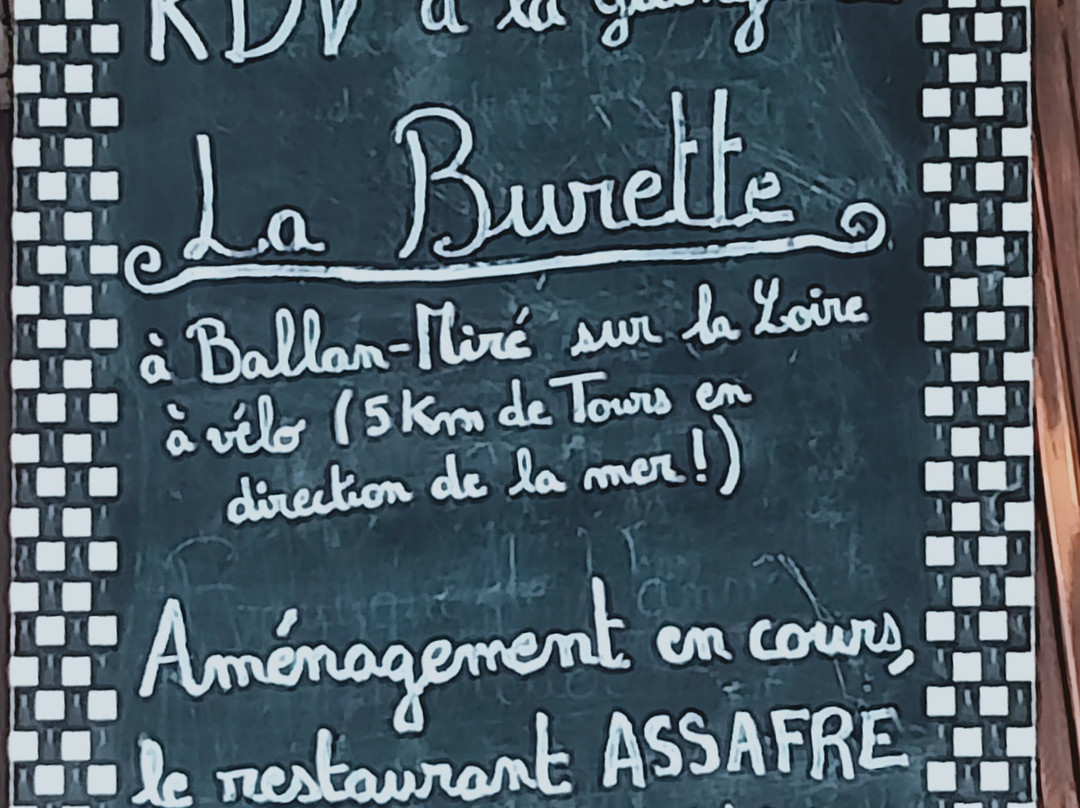 RDV à la
La Burette
à Ballan-Miré sur la Loire
à vélo (5 Km de Tours en
direction de la mer!)
Aménagement en cours,
le restaurant ASSAFRE